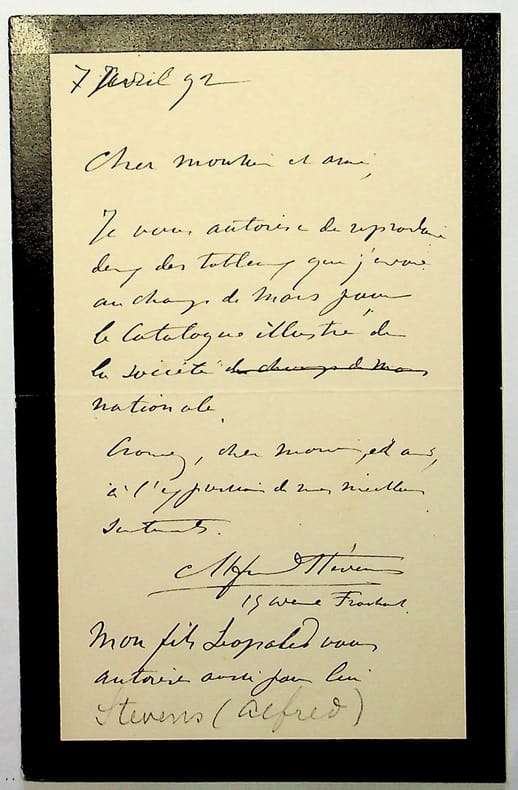 7 Avril 92
Cher monsieur et ami,
Je vous autorise de reproduire
deux des tableaux que j'envoie
au champ de Mars pour
le Catalogue illustré de
la société du champ de Mars
nationale.
Croyez, cher monsieur et ami,
à l'expression de mes meilleurs
sentiments.
Alfred Stevens
15 avenue Frochot.
Mon fils Leopold vous
autorise aussi pour lui
Stevens (Alfred)